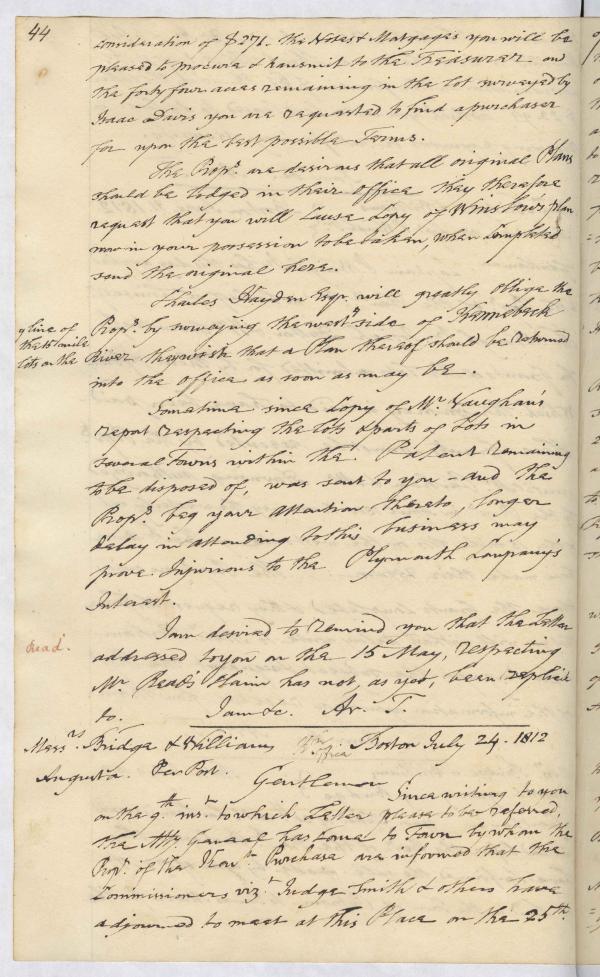 44
consideration of $271. the Notes & Mortgages you will be
pleased to procure & transmit to the Treasurer and
the forty four acres remaining in the lot surveyed by
Isaac Davis you are requested to find a purchaser
for upon the best possible Terms.
The Proprs. are desirous that all original Plans
should be lodged in their office they therefore
request that you will Cause Copy of Winslows plan
now in your possession to be taken, when Completed
send the original here.
Charles Hayden Esqr. will greatly oblige the
Proprs. by surveying the westy side of Kennebeck
y line of
the 15 mile
lots on the
River they wish that a Plan thereof should be returned
into the office as soon as may be.
Sometime since Copy of Mr. Vaughan's
report respecting the lots & parts of Lots in
several Towns within the Patent remaining
to be disposed of, was sent to you - and the
Proprs. beg your attention thereto, longer
delay in attending to this business may
prove Injurious to the Plymouth Company's
Interest.
Read.
I am desired to remind you that the Letter
addressed to you on the 15 May, respecting
Mr. Read's Claim has not, as yet, been replied
to. I am &c. Ar. T.
Messrs. Bridge & Williams office Boston July 24. 1812
Augusta. Per Post.
Gentlemen
Since writing to you
on the 9th. inst. to which Letter please to be referred,
the Atty. General has Come to Town by whom the
Proprs. of the Kenc. Purchase are informed that the
Commissioners vizt. Judge Smith & others have
adjourned to meet at this Place on the 25th.